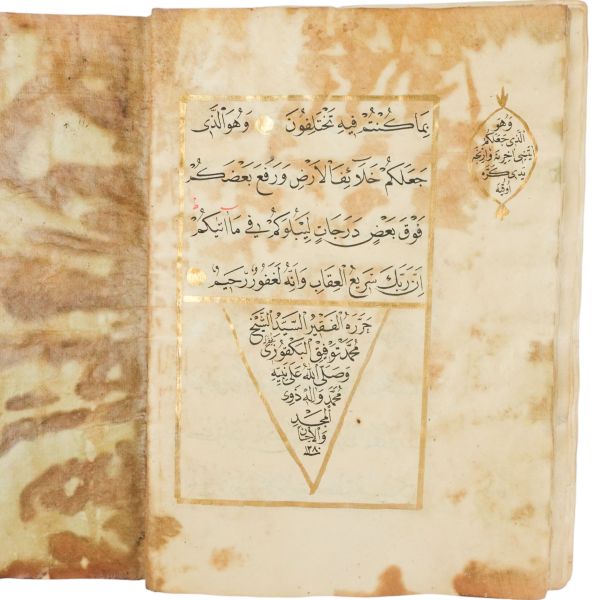 بِمَا كُنْتُمْ فِيهِ تَخْتَلِفُونَ وَهُوَ الَّذِي
جَعَلَكُمْ خَلَائِفَ الْأَرْضِ وَرَفَعَ بَعْضَكُمْ
فَوْقَ بَعْضٍ دَرَجَاتٍ لِيَبْلُوَكُمْ فِي مَا آتَيكُمْ
إِنَّ رَبَّكَ سَرِيعُ الْعِقَابِ وَإِنَّهُ لَغَفُورٌ رَحِيمٌ
حرره الفقير السيد الشيخ
محمد توفيق
وصلى الله على نبيه
محمد وآله ذوي
المجد
والإحسان
١٢٨٠
وهو
الذي جعلكم